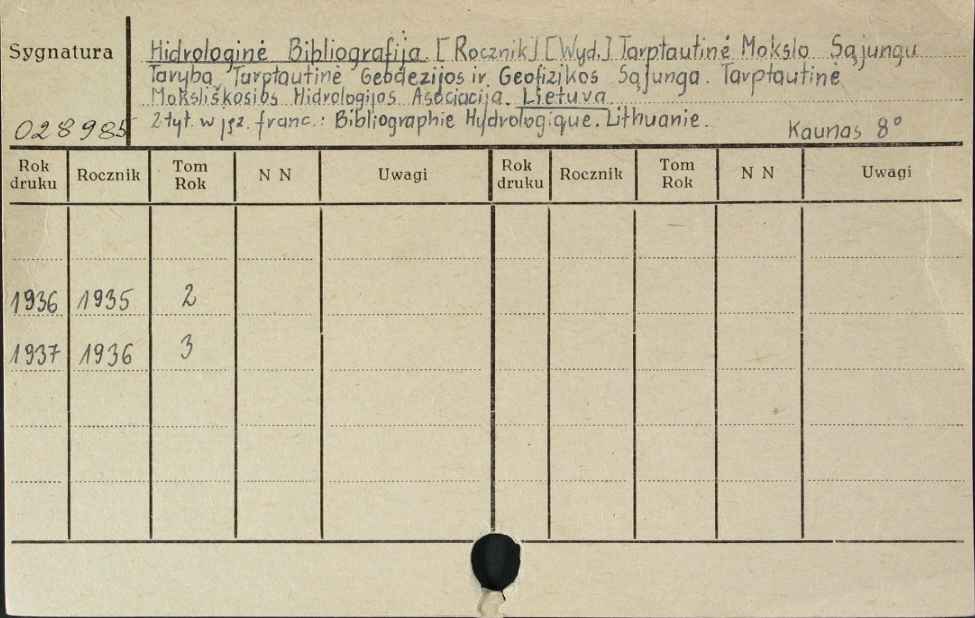 Sygnatura
Hidrologinė Bibliografija. [Rocznik] [Wyd.] Tarptautinė Mokslo Sąjungų
Taryba, Tarptautinė Geodezijos ir Geofizikos Sąjunga. Tarptautinė
Moksliškosios Hidrologijos Asociacija. Lietuva
2 tyt. w jęz. franc.: Bibliographie Hydrologique. Lithuanie.
028985
Kaunas 8°
Rok druku Rocznik Tom Rok N N Uwagi Rok druku Rocznik Tom Rok N N Uwagi
1936 1935 2
1937 1936 3